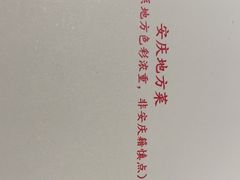 安庆地方菜
地方色彩浓重，非安庆籍慎点）